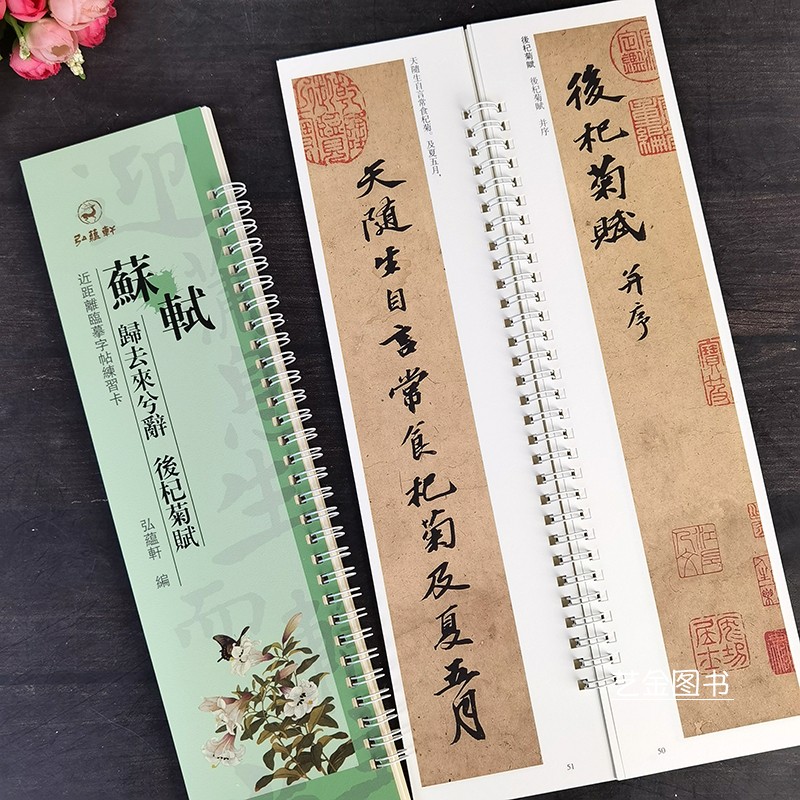 弘蕴軒
蘇軾
歸去來兮辭 後杞菊賦
近距離臨摹字帖練習卡
弘蘊軒 編
後杞菊賦 後杞菊賦 并序
後杞菊賦 并序
50
天隨生自言常食杞菊。及夏五月,
天随生自言常食杞菊及夏五月
51
艺金图书